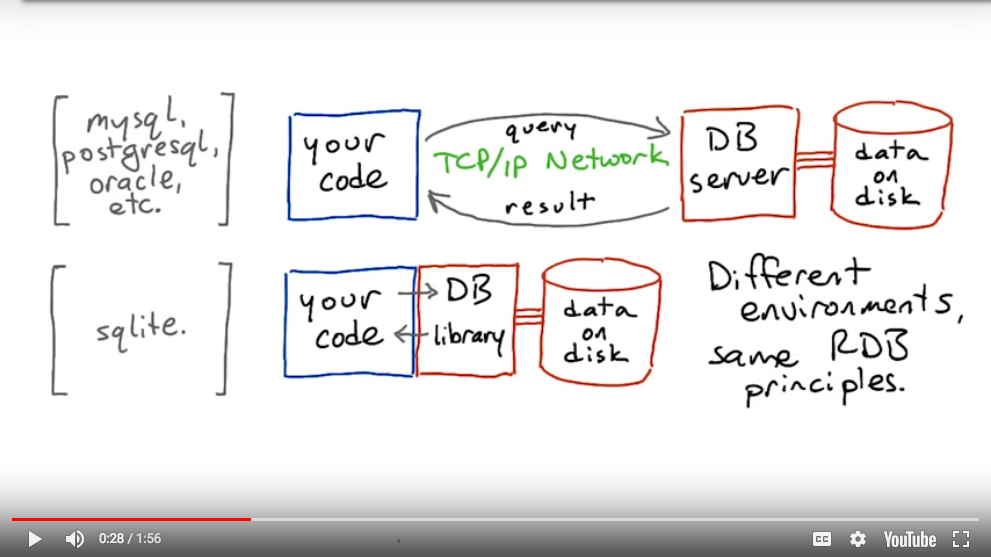 mysql,
postgresql,
oracle,
etc.
your
code
query
TCP/IP Network
result
DB
server
data
on
disk
sqlite.
your
code
DB
library
data
on
disk
Different
environments,
same RDB
principles.
0:28 / 1:56
CC
YouTube